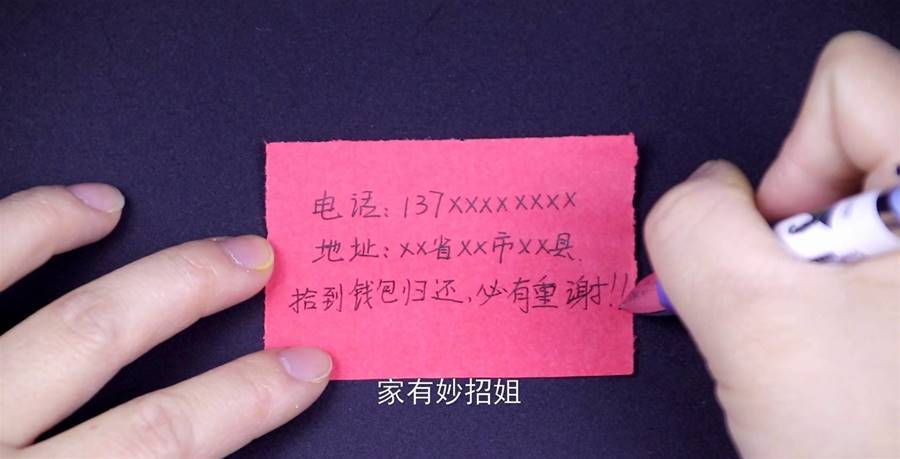 电话：137xxxxxxxx
地址：xx省xx市xx县.
拾到钱包归还，必有重谢!!
家有妙招姐